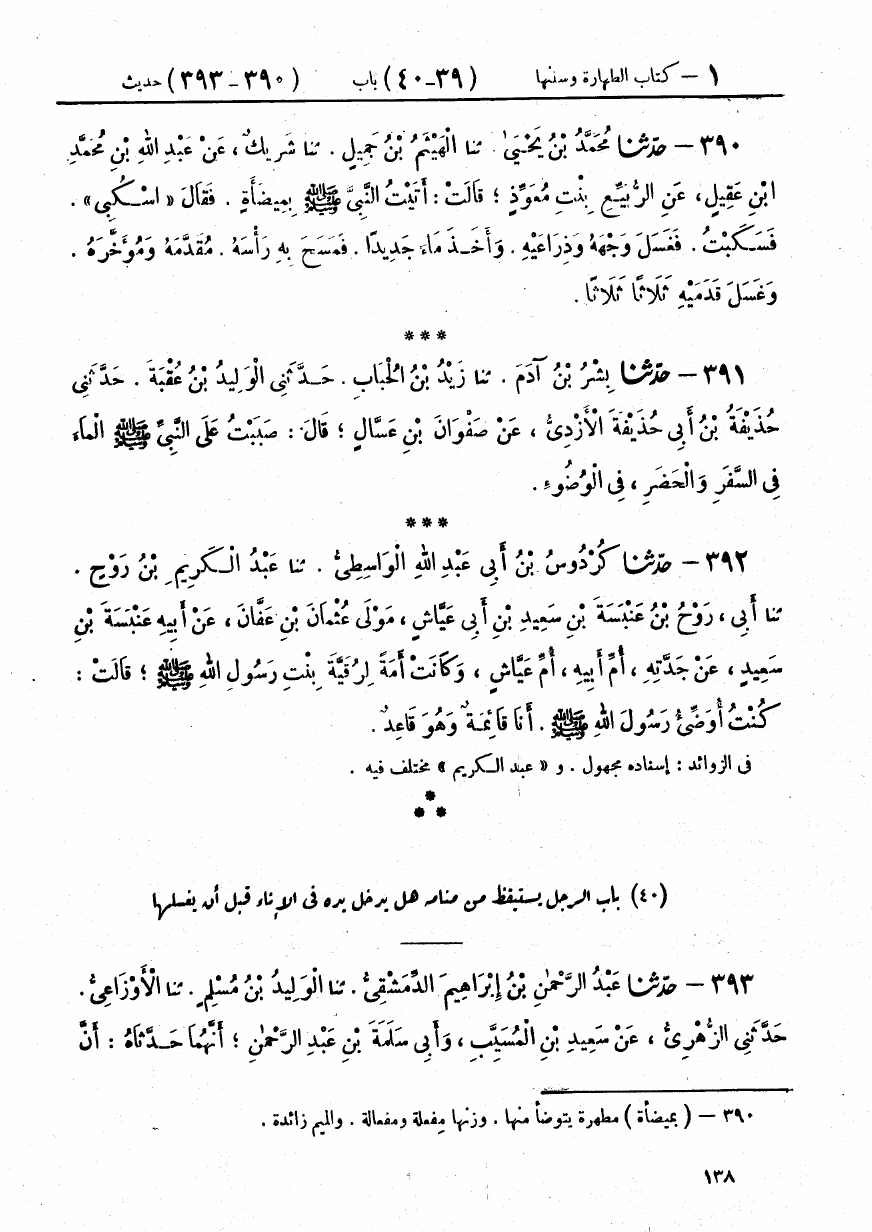 ١ – كتاب الطهارة وسننها (٣٩-٤٠) باب (٣٩٠-٣٩٣) حديث
٣٩٠ – حَدَّثَنَا مُحَمَّدُ بْنُ يَحْيَىٰ. ثنا الْهَيْثَمُ بْنُ جَمِيلٍ. ثنا شَرِيكٌ، عَنْ عَبْدِ اللهِ بْنِ مُحَمَّدِ
ابْنِ عَقِيلٍ، عَنِ الرُّبَيِّعِ بِنْتِ مُعَوِّذٍ؛ قَالَتْ: أَتَيْتُ النَّبِيَّ ﷺ بِمِيضَأَةٍ. فَقَالَ «اسْكُبِي».
فَسَكَبْتُ. فَغَسَلَ وَجْهَهُ وَذِرَاعَيْهِ. وَأَخَذَ مَاءً جَدِيدًا. فَمَسَحَ بِهِ رَأْسَهُ. مُقَدَّمَهُ وَمُؤَخَّرَهُ.
وَغَسَلَ قَدَمَيْهِ ثَلَاثًا ثَلَاثًا.
***
٣٩١ – حَدَّثَنَا بِشْرُ بْنُ آدَمَ. ثنا زَيْدُ بْنُ الْحُبَابِ. حَدَّثَنِي الْوَلِيدُ بْنُ عُقْبَةَ. حَدَّثَنِي
حُذَيْفَةُ بْنُ أَبِي حُذَيْفَةَ الْأَزْدِيُّ، عَنْ صَفْوَانَ بْنِ عَسَّالٍ؛ قَالَ: صَبَبْتُ عَلَى النَّبِيِّ ﷺ الْمَاءَ
فِي السَّفَرِ وَالْحَضَرِ، فِي الْوُضُوءِ.
***
٣٩٢ – حَدَّثَنَا كُرْدُوسُ بْنُ أَبِي عَبْدِ اللهِ الْوَاسِطِيُّ. ثنا عَبْدُ الْكَرِيمِ بْنُ رَوْحٍ.
ثنا أَبِي، رَوْحُ بْنُ عَنْبَسَةَ بْنِ سَعِيدِ بْنِ أَبِي عَيَّاشٍ، مَوْلَى عُثْمَانَ بْنِ عَفَّانَ، عَنْ أَبِيهِ عَنْبَسَةَ بْنِ
سَعِيدٍ، عَنْ جَدَّتِهِ، أُمِّ أَبِيهِ، أُمِّ عَيَّاشٍ، وَكَانَتْ أَمَةً لِرُقَيَّةَ بِنْتِ رَسُولِ اللهِ ﷺ؛ قَالَتْ:
كُنْتُ أُوَضِّئُ رَسُولَ اللهِ ﷺ. أَنَا قَائِمَةٌ وَهُوَ قَاعِدٌ.
فى الزوائد: إسناده مجهول. و «عبد الكريم» مختلف فيه.
*
* *
(٤٠) باب الرجل يستيقظ من منامه هل يدخل يده فى الإناء قبل أن يغسلها
٣٩٣ – حَدَّثَنَا عَبْدُ الرَّحْمٰنِ بْنُ إِبْرَاهِيمَ الدِّمَشْقِيُّ. ثنا الْوَلِيدُ بْنُ مُسْلِمٍ. ثنا الْأَوْزَاعِيُّ.
حَدَّثَنِي الزُّهْرِيُّ، عَنْ سَعِيدِ بْنِ الْمُسَيَّبِ، وَأَبِي سَلَمَةَ بْنِ عَبْدِ الرَّحْمٰنِ؛ أَنَّهُمَا حَدَّثَاهُ: أَنَّ
٣٩٠ – (بميضأة) مطهرة يتوضأ منها. وزنها مِفعلة ومفعالة. والميم زائدة.
١٣٨